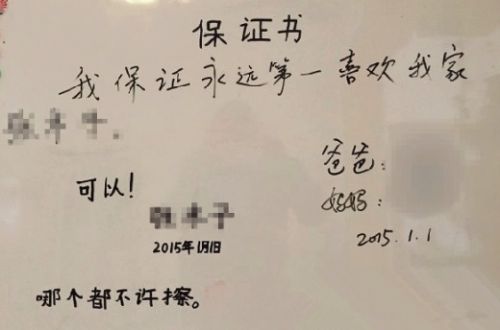 保证书
我保证永远第一喜欢我家
爸爸:
可以!
妈妈:
2015.1.1
2015年1月1日
哪个都不许擦。